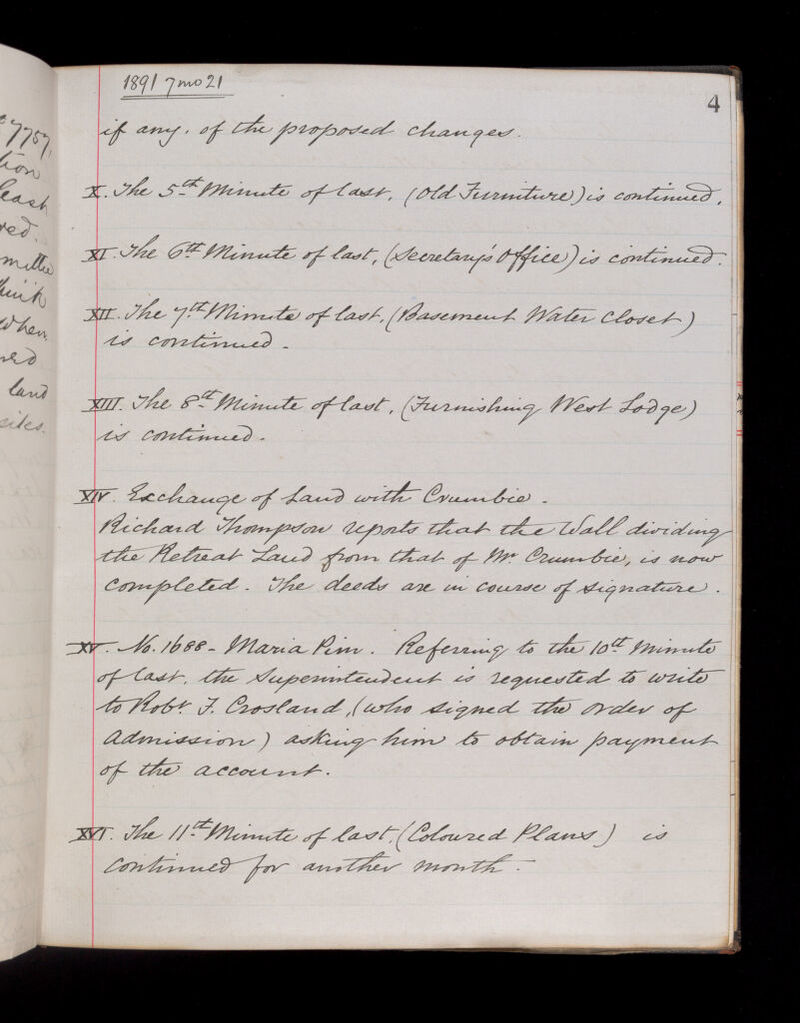 1891 7mo 21
4
if any, of the proposed changes.
X. The 5th Minute of last, (Old Furniture) is continued.
XI. The 6th Minute of last, (Secretary's Office) is continued.
XII. The 7th Minute of last, (Basement Water Closet)
is continued.
XIII. The 8th Minute of last, (Furnishing West Lodge)
is continued.
XIV. Exchange of Land with Crumbie.
Richard Thompson reports that the Wall dividing
the Retreat Land from that of Mr Crumbie, is now
completed. The deeds are in course of signature.
XV. No. 1688 - Maria Pim. Referring to the 10th Minute
of last, the Superintendent is requested to write
to Robt F. Crosland, (who signed the order of
Admission) asking him to obtain payment
of the account.
XVI. The 11th Minute of last, (Coloured Plans) is
continued for another month.
tion
least
red.
think
when
land
sites.